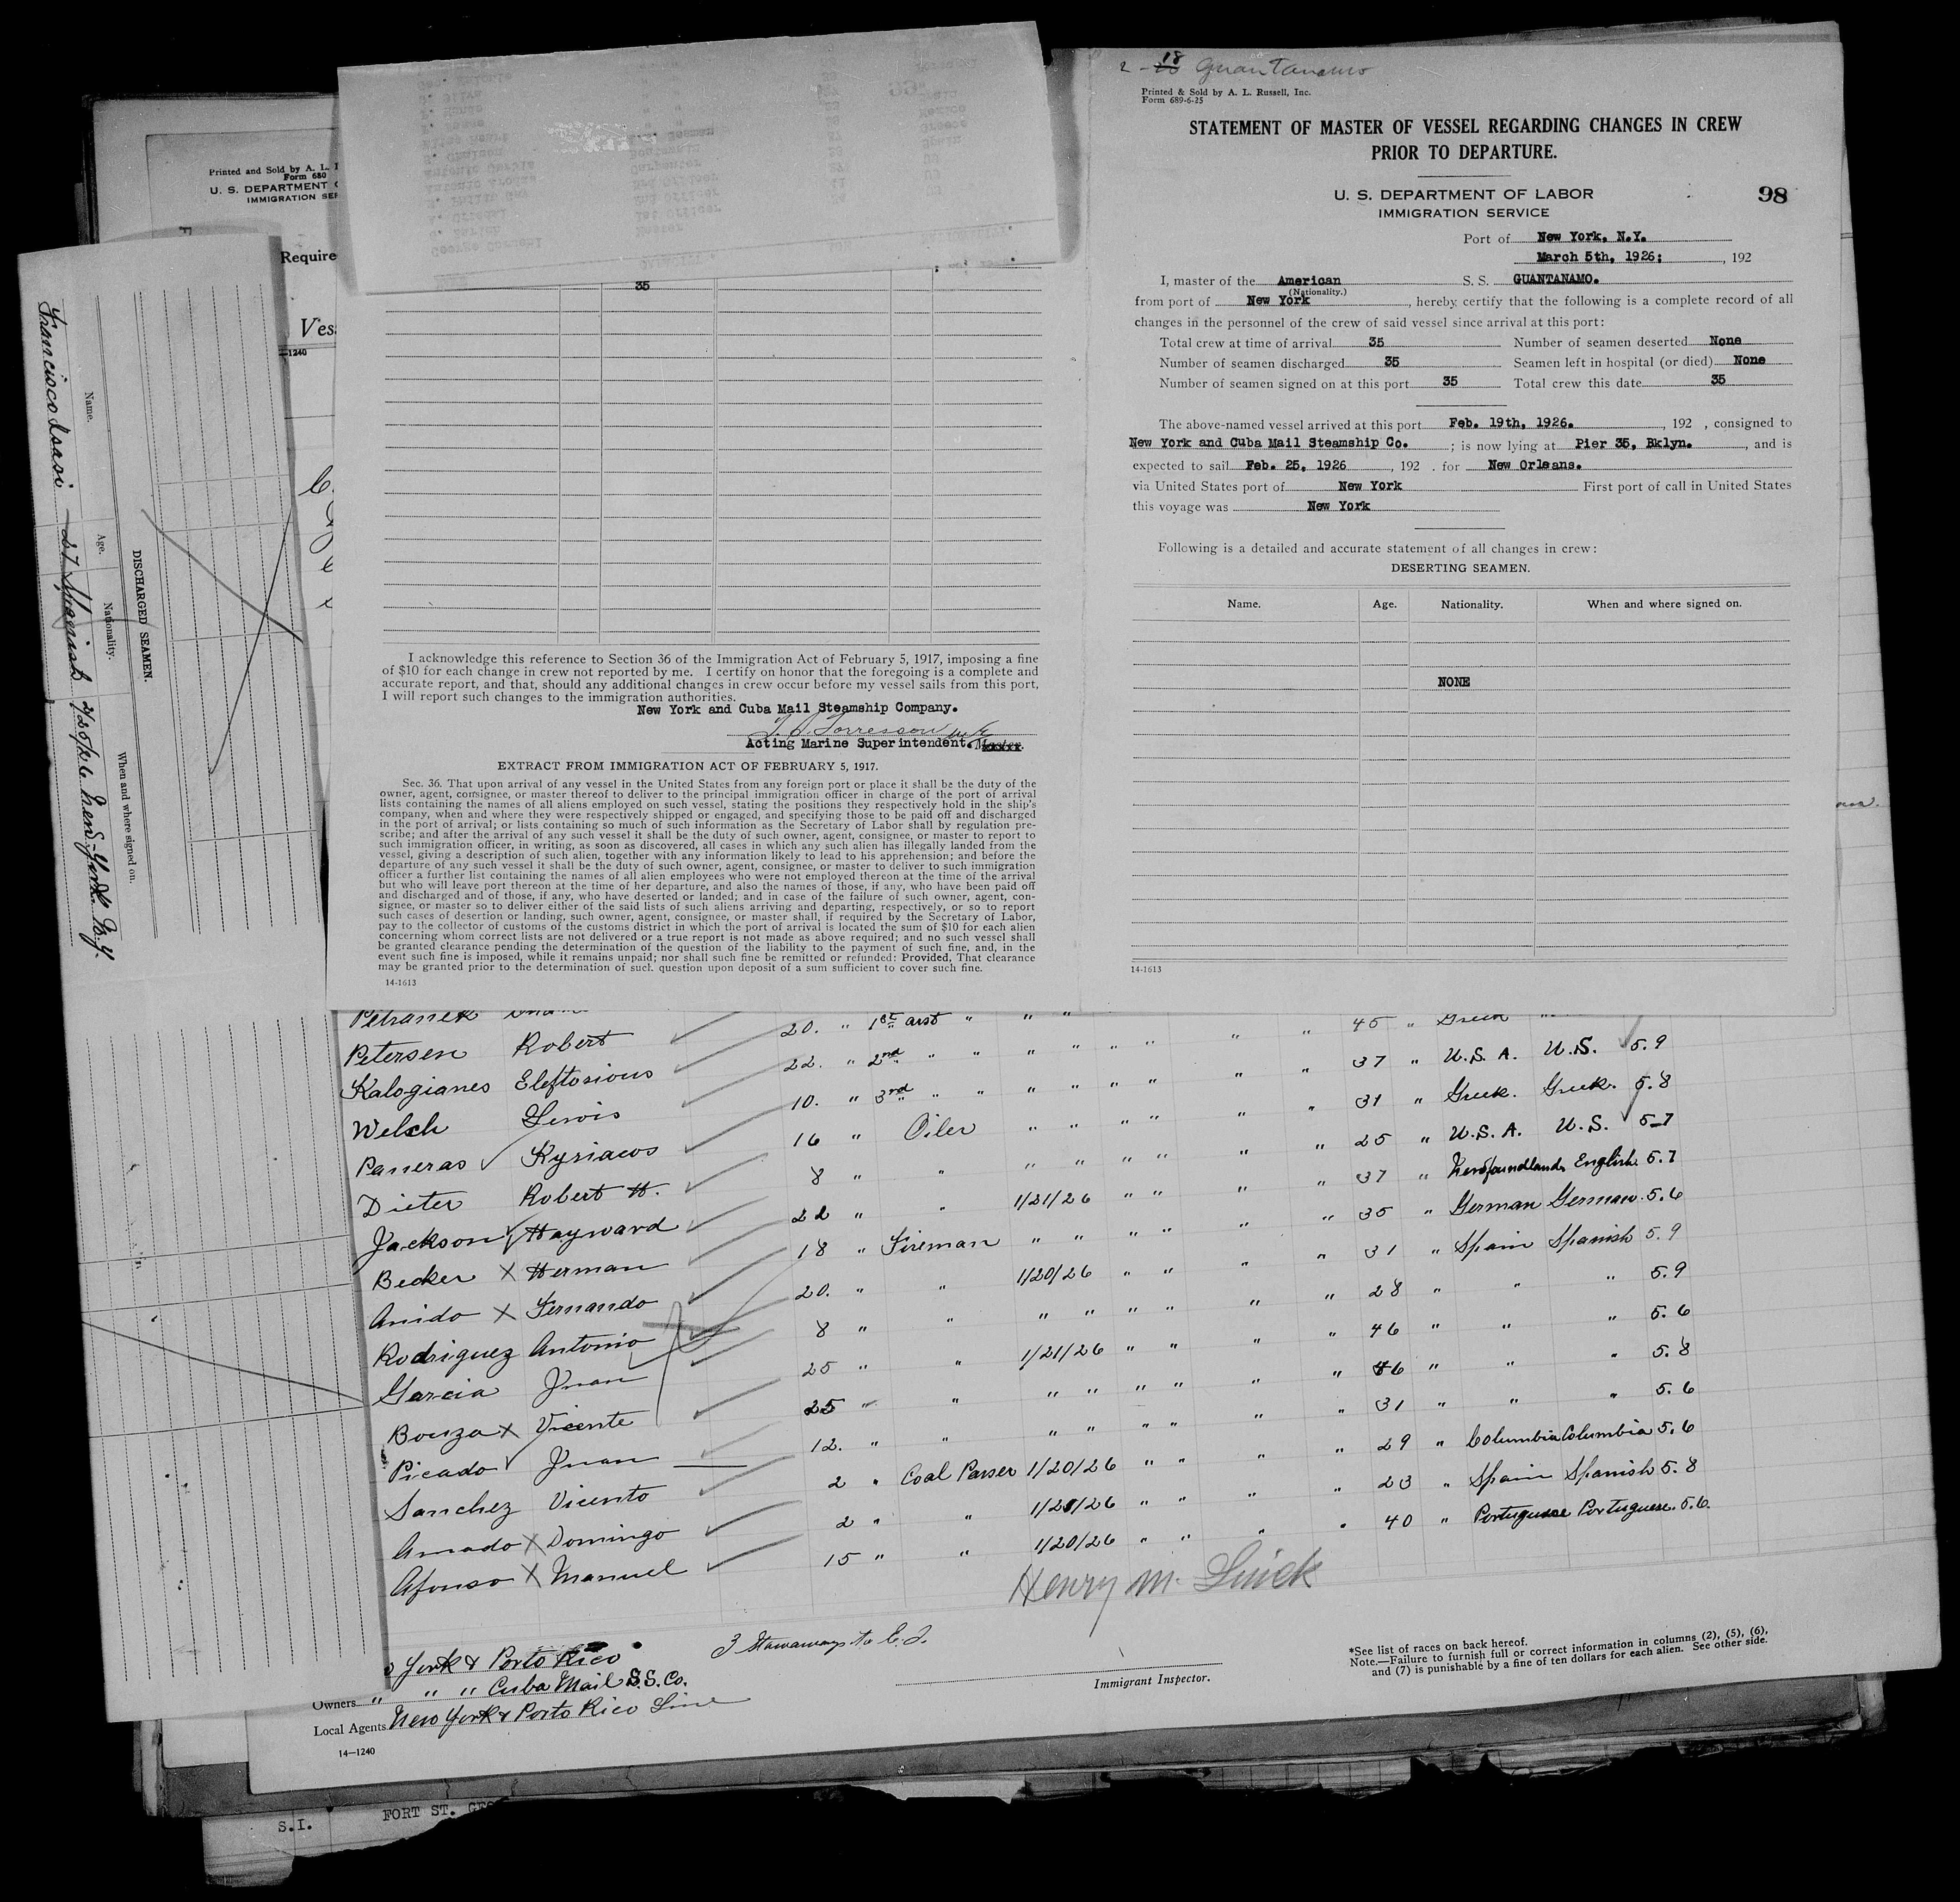 2 - 18 Guantanamo
Printed & Sold by A. L. Russell, Inc.
Form 689-6-25
STATEMENT OF MASTER OF VESSEL REGARDING CHANGES IN CREW
PRIOR TO DEPARTURE.
U. S. DEPARTMENT OF LABOR
IMMIGRATION SERVICE
98
Port of New York, N.Y.
March 5th, 1926: , 192
I, master of the American S. S. GUANTANAMO.
(Nationality.)
from port of New York , hereby certify that the following is a complete record of all
changes in the personnel of the crew of said vessel since arrival at this port:
Total crew at time of arrival 35 Number of seamen deserted None
Number of seamen discharged 35 Seamen left in hospital (or died) None
Number of seamen signed on at this port 35 Total crew this date 35
The above-named vessel arrived at this port Feb. 19th, 1926. , 192 , consigned to
New York and Cuba Mail Steamship Co. ; is now lying at Pier 35, Bklyn. , and is
expected to sail Feb. 25, 1926 , 192 . for New Orleans.
via United States port of New York First port of call in United States
this voyage was New York
Following is a detailed and accurate statement of all changes in crew:
DESERTING SEAMEN.
Name. Age. Nationality. When and where signed on.
NONE
14-1613
Printed and Sold by A. L.
Form 680
U. S. DEPARTMENT
IMMIGRATION SER
Require
Ves
—1240
DISCHARGED SEAMEN.
Name. Age. Nationality. When and where signed on.
Francisco 27 Spanish 2/25/26 New-York N.Y.
35
I acknowledge this reference to Section 36 of the Immigration Act of February 5, 1917, imposing a fine
of $10 for each change in crew not reported by me. I certify on honor that the foregoing is a complete and
accurate report, and that, should any additional changes in crew occur before my vessel sails from this port,
I will report such changes to the immigration authorities.
New York and Cuba Mail Steamship Company.
Acting Marine Superintendent. Master.
EXTRACT FROM IMMIGRATION ACT OF FEBRUARY 5, 1917.
Sec. 36. That upon arrival of any vessel in the United States from any foreign port or place it shall be the duty of the
owner, agent, consignee, or master thereof to deliver to the principal immigration officer in charge of the port of arrival
lists containing the names of all aliens employed on such vessel, stating the positions they respectively hold in the ship's
company, when and where they were respectively shipped or engaged, and specifying those to be paid off and discharged
in the port of arrival; or lists containing so much of such information as the Secretary of Labor shall by regulation pre-
scribe; and after the arrival of any such vessel it shall be the duty of such owner, agent, consignee, or master to report to
such immigration officer, in writing, as soon as discovered, all cases in which any such alien has illegally landed from the
vessel, giving a description of such alien, together with any information likely to lead to his apprehension; and before the
departure of any such vessel it shall be the duty of such owner, agent, consignee, or master to deliver to such immigration
officer a further list containing the names of all alien employees who were not employed thereon at the time of the arrival
but who will leave port thereon at the time of her departure, and also the names of those, if any, who have been paid off
and discharged and of those, if any, who have deserted or landed; and in case of the failure of such owner, agent, con-
signee, or master so to deliver either of the said lists of such aliens arriving and departing, respectively, or so to report
such cases of desertion or landing, such owner, agent, consignee, or master shall, if required by the Secretary of Labor,
pay to the collector of customs of the customs district in which the port of arrival is located the sum of $10 for each alien
concerning whom correct lists are not delivered or a true report is not made as above required; and no such vessel shall
be granted clearance pending the determination of the question of the liability to the payment of such fine, and, in the
event such fine is imposed, while it remains unpaid; nor shall such fine be remitted or refunded: Provided, That clearance
may be granted prior to the determination of such question upon deposit of a sum sufficient to cover such fine.
14-1613
Petranek 20. " 1st asst " " " " " 45 " Greek
Petersen Robert 22. " 2nd " " " " " " " " 37 " U.S.A. U.S. 5.9
Kalogianes Eleftosious 10. " 3rd " " " " " " " " 31 " Greek. Greek. 5.8
Welsh Lewis 16 " Oiler " " " " " " 25 " U.S.A. U.S. 5-7
Paneras Kyriacos 8 " " " " " " " " 37 " Newfoundland English 5.7
Dieter Robert H. 22 " " 1/21/26 " " " " 35 " German German 5.6
Jackson Hayward 18 " Fireman " " " " " " 31 " Spain Spanish 5.9
Becker X Herman 20. " " 1/20/26 " " " " 28 " " " 5.9
Anido X Fernando 8 " " " " " " " " 46 " " " 5.6
Rodriguez Antonio 25 " " 1/21/26 " " " " 46 " " " 5.8
Garcia Juan 25 " " " " " " " " 31 " " " 5.6
Bouza X Vicente 12. " " " " " " " " 29 " Columbia Columbia 5.6
Picado Juan 2 " Coal Passer 1/20/26 " " " " 23 " Spain Spanish 5.8
Sanchez Vicento 2 " " 1/21/26 " " " " 40 " Portuguese Portuguese. 5.6.
Amado X Domingo 15 " " 1/20/26 " " " "
Afonso X Manuel
Henry M.
3 Stowaways to
York & Porto Rico
Owners " " " Cuba Mail S.S. Co.
Local Agents New York & Porto Rico Line
14—1240
Immigrant Inspector.
*See list of races on back hereof.
Note.—Failure to furnish full or correct information in columns (2), (5), (6),
and (7) is punishable by a fine of ten dollars for each alien. See other side.
S.I. FORT ST. GEO